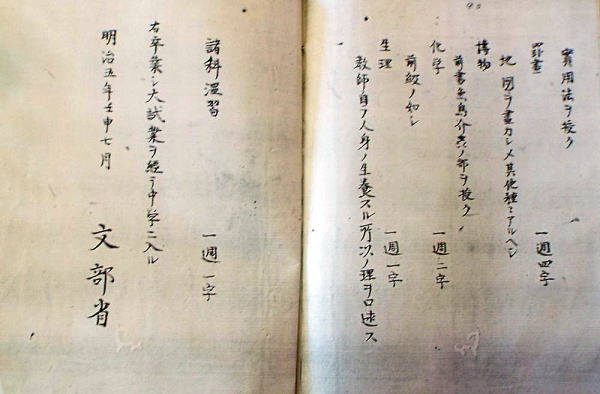 實用法ヲ授ク
罫畫 一週四字
地圖ヲ畫カシメ其他種々アルヘシ
博物
前書魚鳥介虫ノ部ヲ授ク
化学 一週二字
前級ノ如シ
生理 一週一字
教師自ラ人身ノ生養スル所以ノ理ヲ口述ス
諸科温習 一週一字
右卒業シ大試業ヲ經テ中学ニ入ル
明治五年壬申七月
文部省